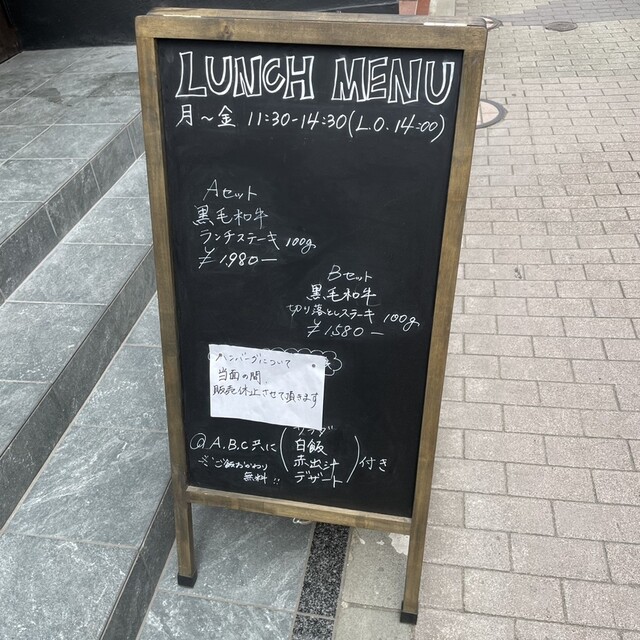 LUNCH MENU
月～金 11:30-14:30(L.O.14:00)
Aセット
黒毛和牛
ランチステーキ 100g
¥1,980-
Bセット
黒毛和牛
切り落としステーキ 100g
¥1,580-
ハンバーグについて
当面の間
販売休止させて頂きます
A,B,C共に
サラダ
白飯
赤出汁
デザート
付き
ご飯おかわり
無料!!